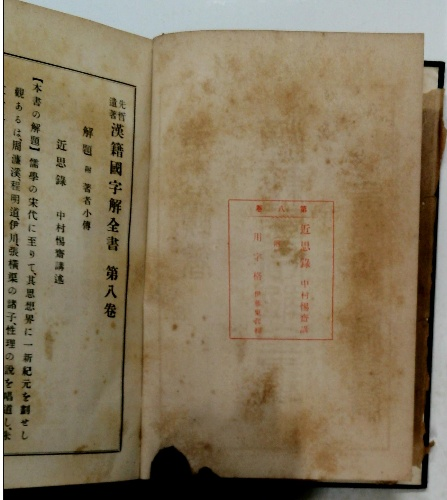 先哲遺著 漢籍國字解全書 第八卷
解題 附 著者小傳
近思錄 中村惕齋講述
【本書の解題】儒學の宋代に至りて、其思想界に一新紀元を劃せし
觀あるは、周濂溪、程明道、伊川、張橫渠の諸子、性理の說を唱道し、朱
第八卷
近思錄 中村惕齋講
用字格 伊藤東涯